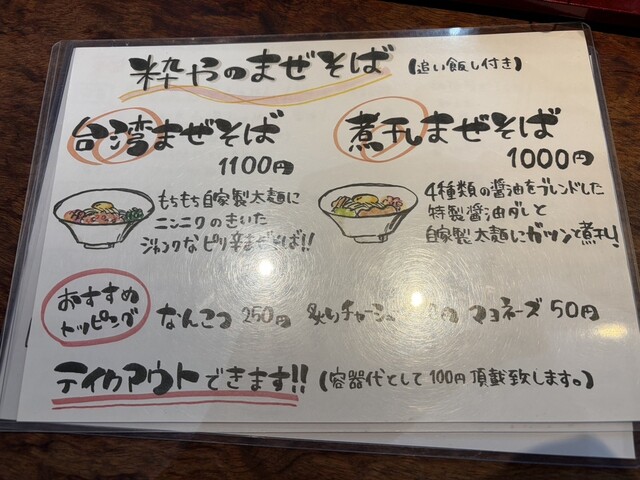 粋やのまぜそば (追い飯し付き)
台湾まぜそば
1100円
煮干しまぜそば
1000円
もちもち自家製太麺に
ニンニクのきいた
ジャンクなピリ辛まぜそば!!
4種類の醤油をブレンドした
特製醤油ダレと
自家製太麺にガツンと煮干!
おすすめ
トッピング
なんこつ 250円 炙りチャーシュー 円 マヨネーズ 50円
テイクアウトできます!! (容器代として100円頂戴致します。)